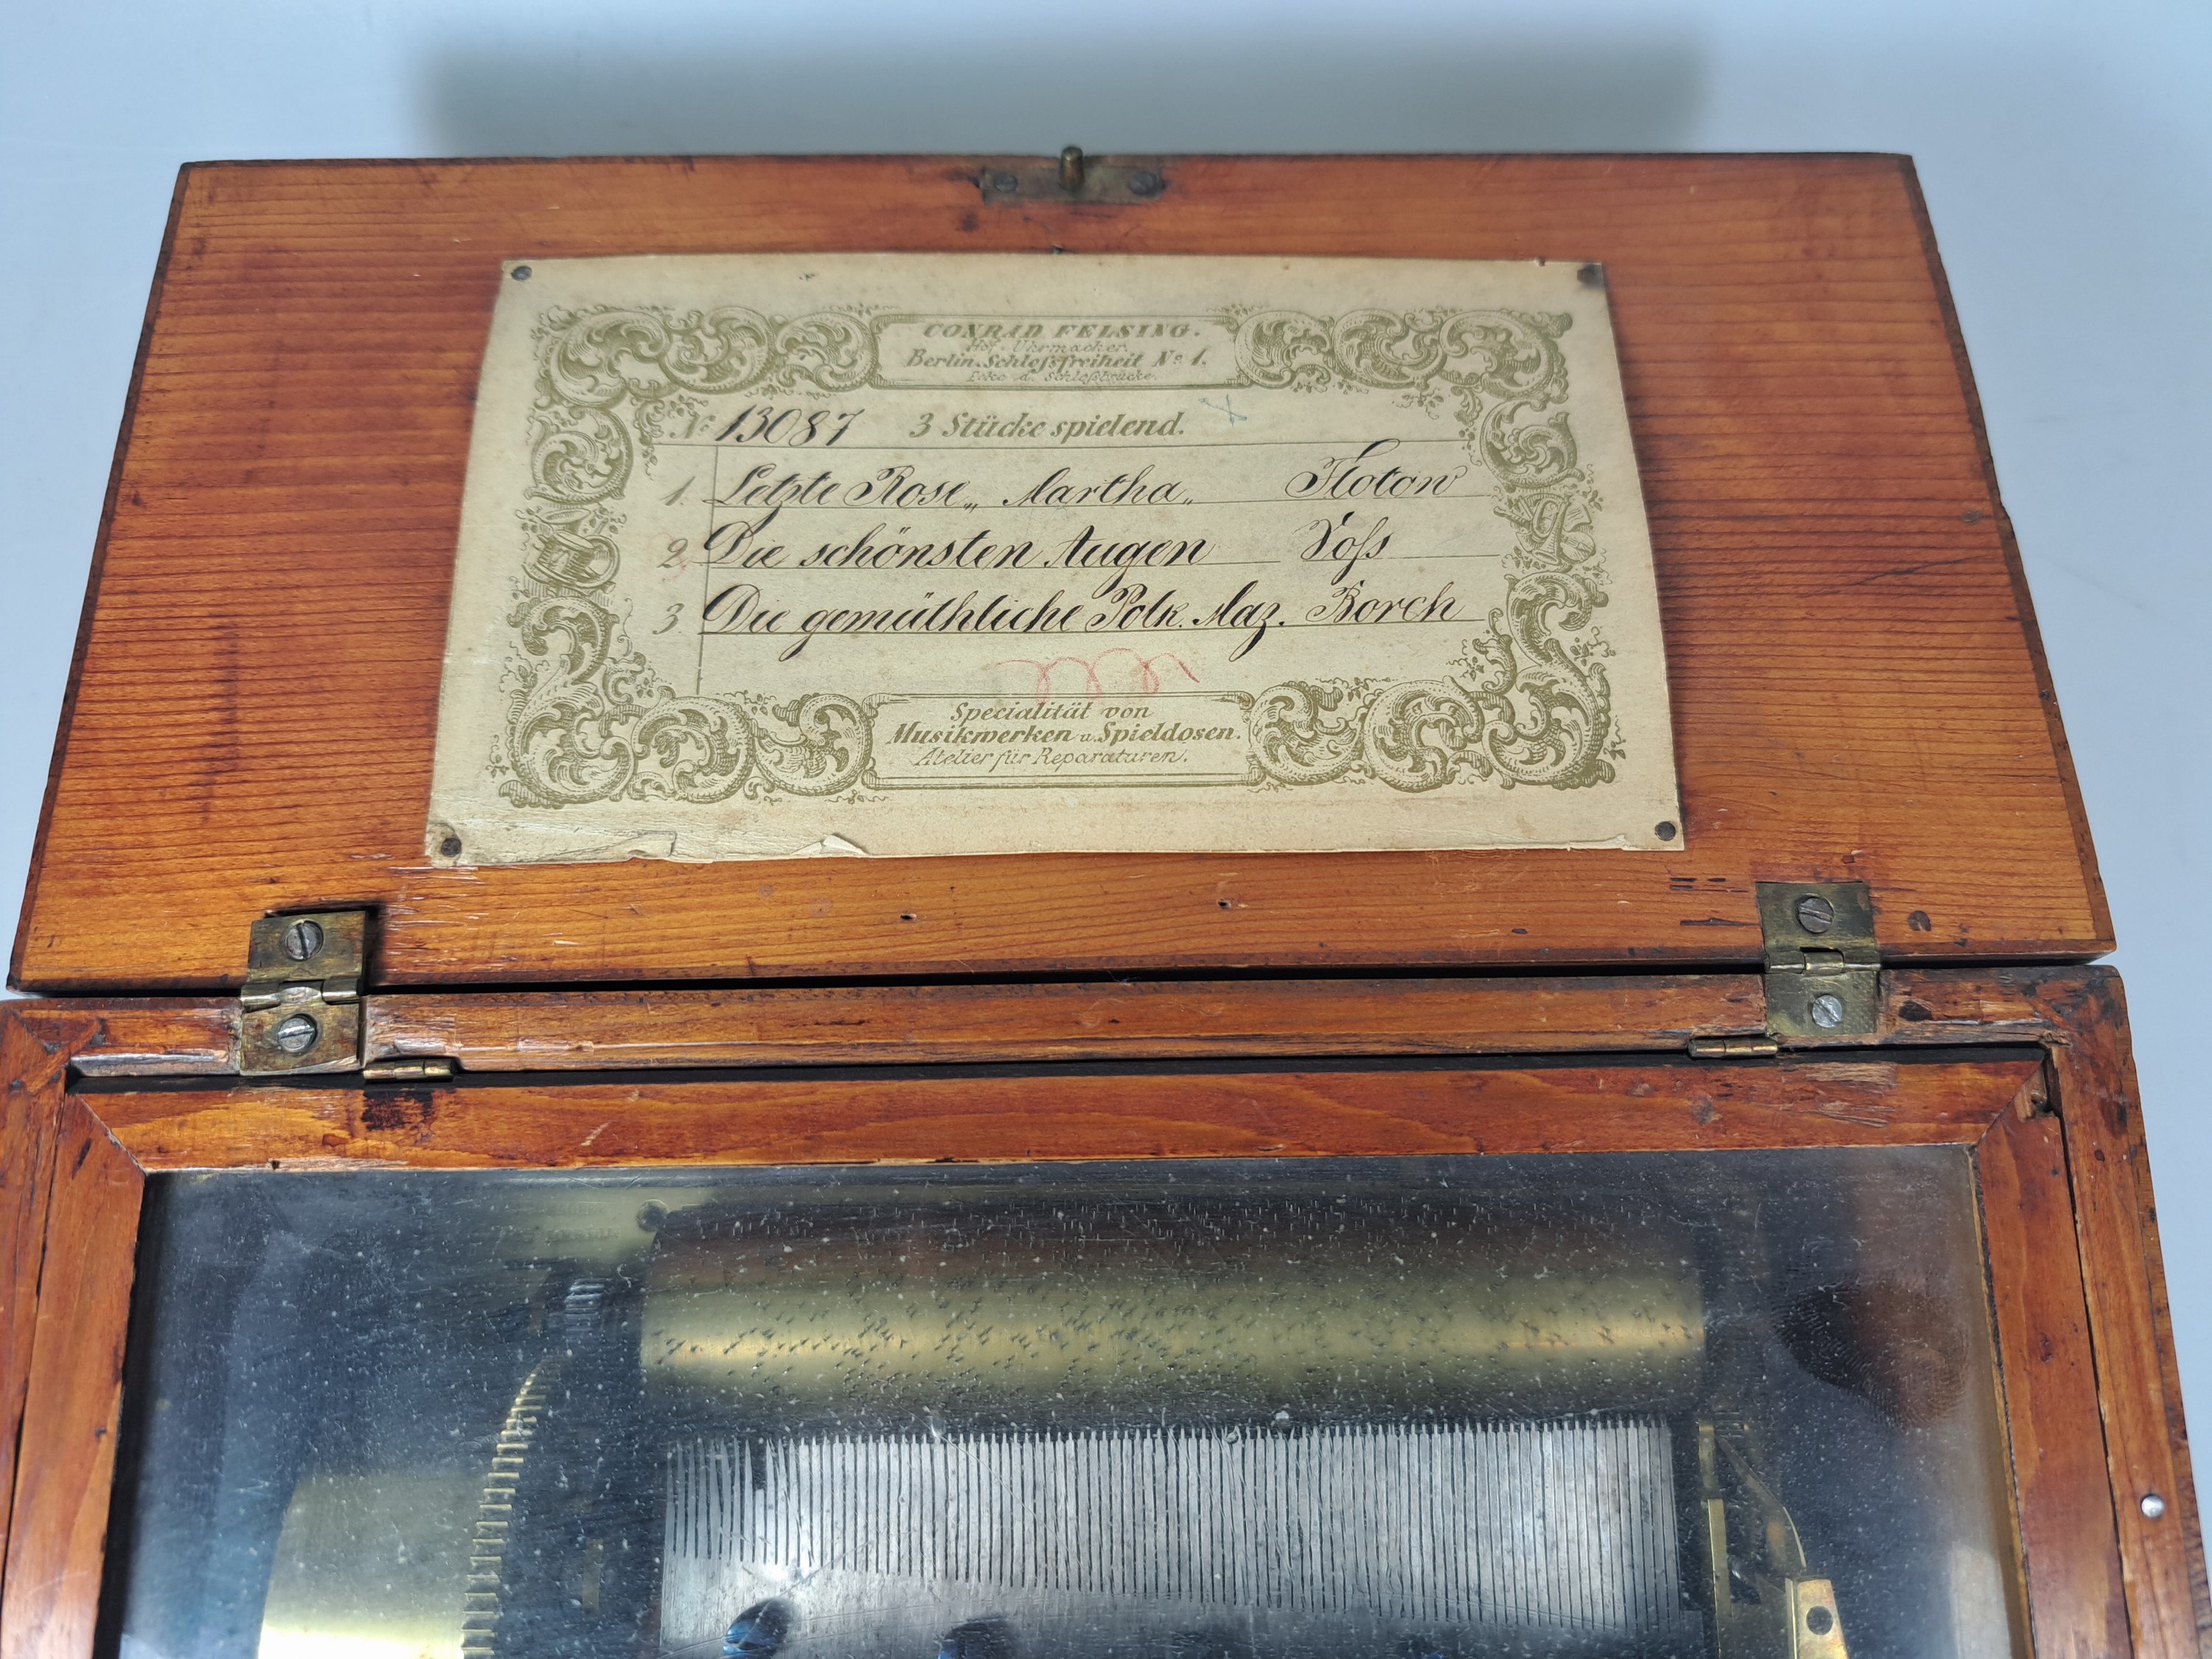 CONRAD FELSING.
Hof-Uhrmacher.
Berlin, Schloſsfreiheit No. 1.
Ecke d. Schloßbrücke.
No. 13087 3 Stücke spielend. X
1. Letzte Rose „Martha„ Flotow
2. Die schönsten Augen Voſs
3. Die gemüthliche Polk. Maz. Borch
Specialität von
Musikwerken u. Spieldosen.
Atelier für Reparaturen.